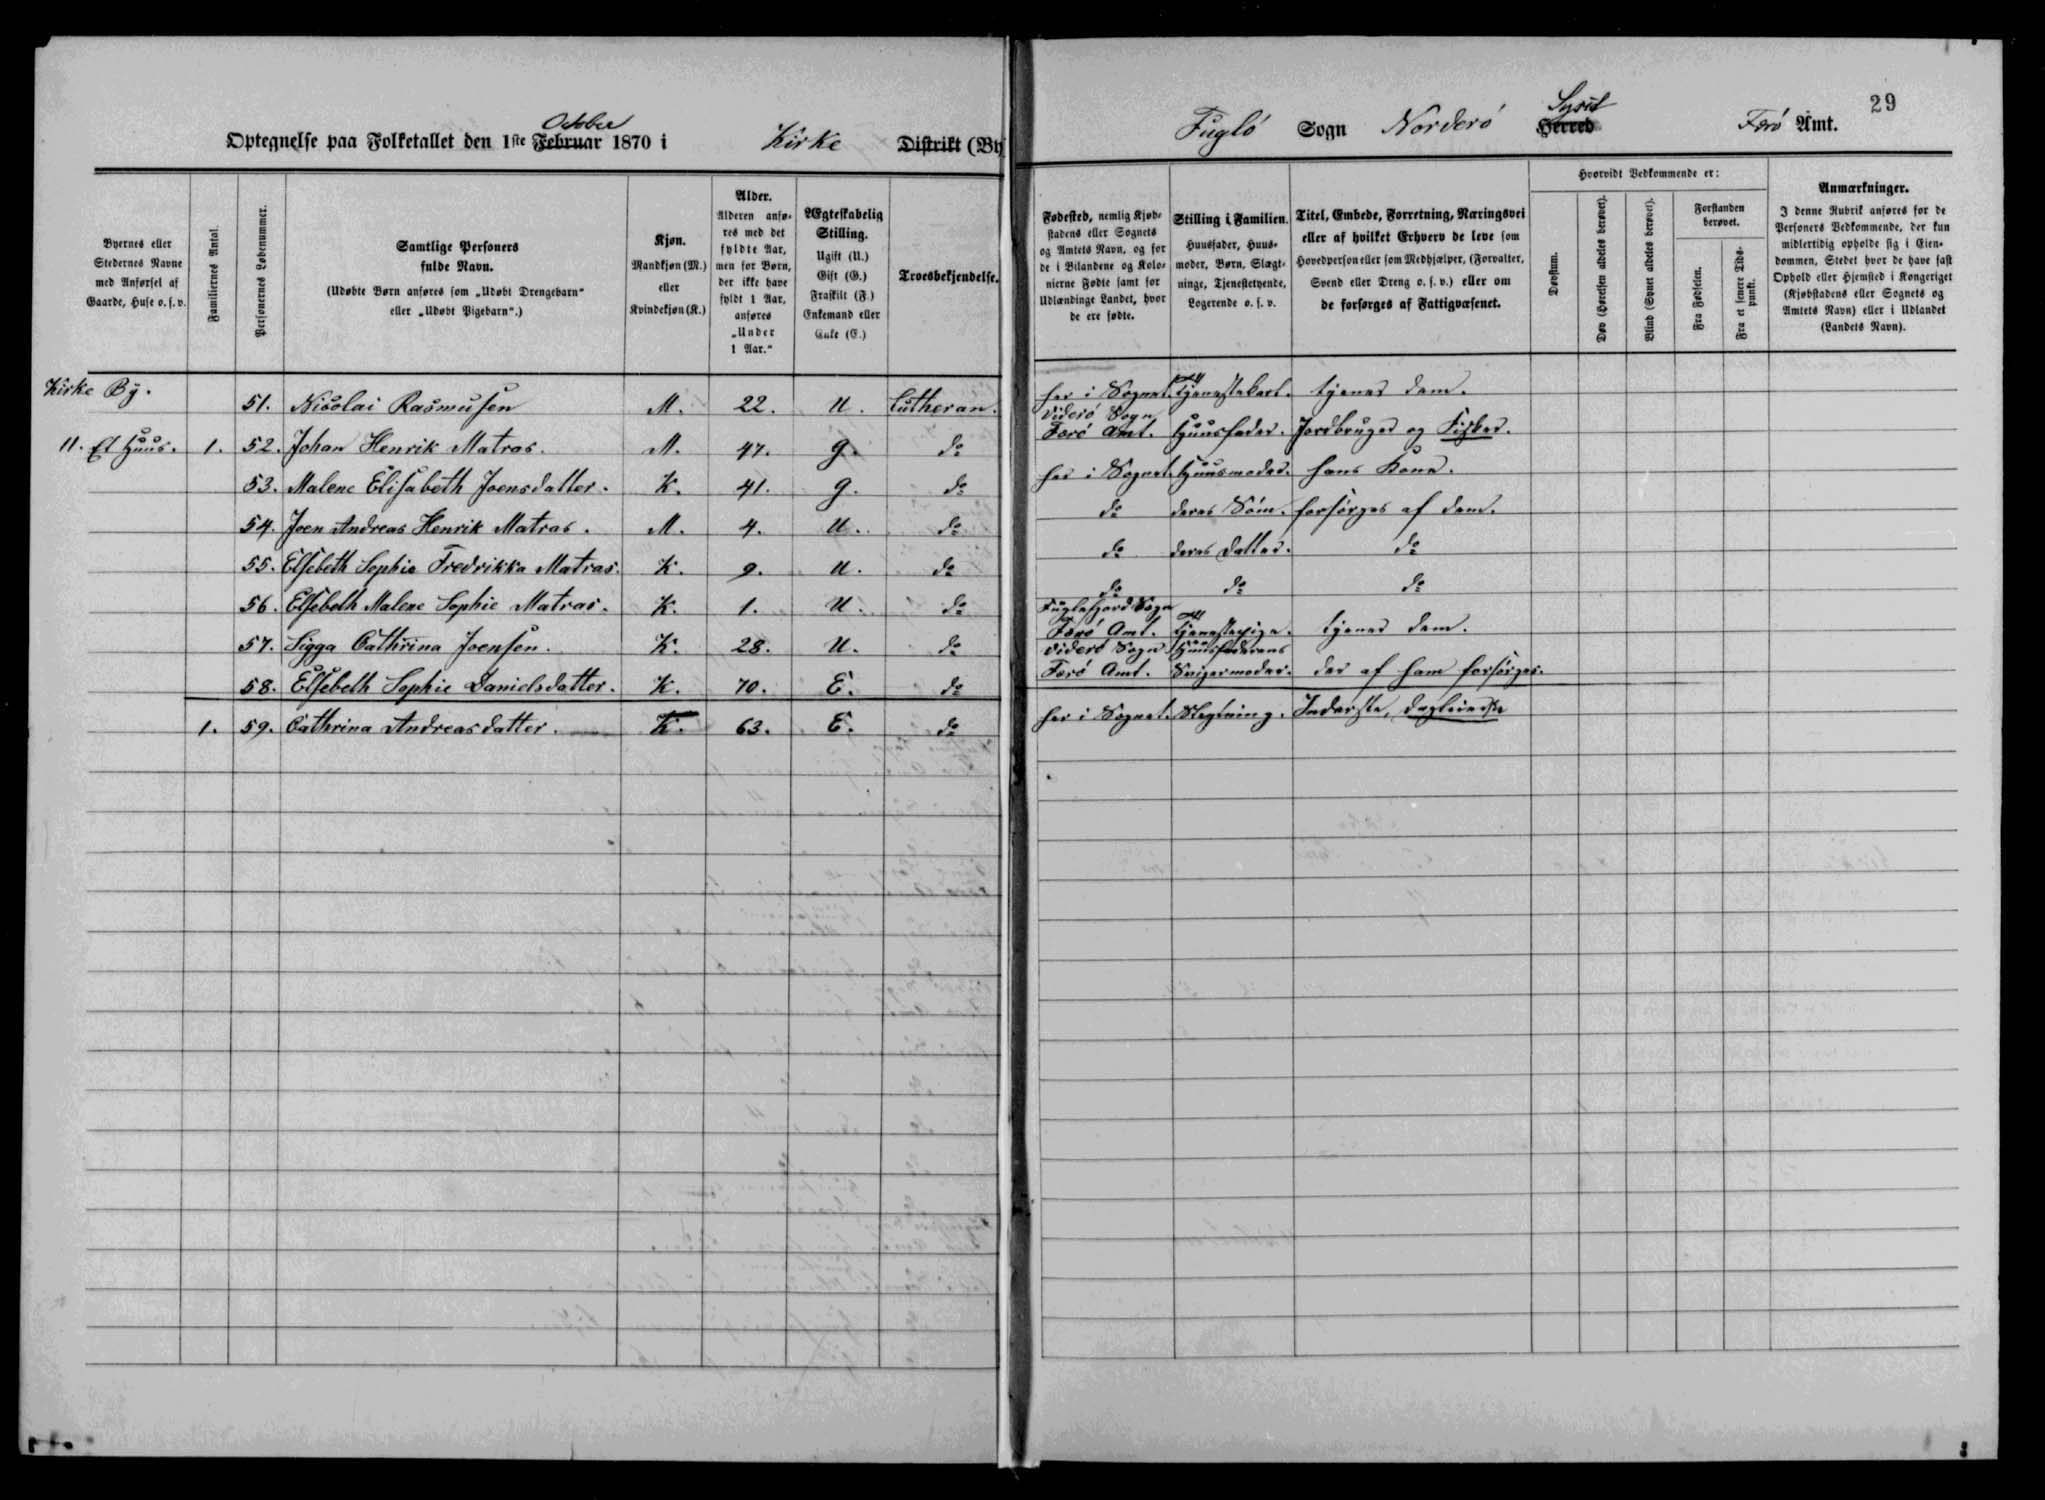 29
Optegnelse paa Folketallet den 1ste Februar October 1870 i Kirke Distrikt (By
Fugló Sogn Norderó Herred Sysel Færó Amt.
Byernes eller Stedernes Navne med Anførsel af Gaarde, Huse o. s. v.
Familiernes Antal.
Personernes Løbenummer.
Samtlige Personers fulde Navn.
(Udøbte Børn anføres som „Udøbt Drengebarn“ eller „Udøbt Pigebarn“.)
Kjøn.
Mandkjøn (M.) eller Kvindekjøn (K.)
Alder.
Alderen anføres med det fyldte Aar, men for Børn, der ikke have fyldt 1 Aar, anføres „Under 1 Aar.“
Ægteskabelig Stilling.
Ugift (U.) Gift (G.) Fraskilt (F.) Enkemand eller Enke (E.)
Troesbekjendelse.
Fødested, nemlig Kjøbstadens eller Sognets og Amtets Navn, og for de i Bilandene og Kolonierne Fødte samt for Udlændinge Landet, hvor de ere fødte.
Stilling i Familien.
Huusfader, Huusmoder, Børn, Slægtninge, Tjenestetyende, Logerende o. s. v.
Titel, Embede, Forretning, Næringsvei eller af hvilket Erhverv de leve som Hovedperson eller som Medhjælper, (Forvalter, Svend eller Dreng o. s. v.) eller om de forsørges af Fattigvæsenet.
Hvorvidt Vedkommende er:
Døvstum.
Døv (Hørelsen aldeles berøvet).
Blind (Synet aldeles berøvet).
Forstanden berøvet.
Fra Fødselen.
Fra et senere Tidspunkt.
Anmærkninger.
I denne Rubrik anføres for de Personers Vedkommende, der kun midlertidig opholde sig i Eiendommen, Stedet hvor de have fast Ophold eller Hjemsted i Kongeriget (Kjøbstadens eller Sognets og Amtets Navn) eller i Udlandet (Landets Navn).
Kirke By.
51. Nicolai Rasmusen M. 22. U. Lutheran. her i Sognet. Tjenestekarl. tjener dem.
11. Et Huus. 1. 52. Johan Henrik Matras. M. 47. g. do Videró Sogn Færó Amt. Huusfader. Jordbruger og Fisker.
53. Malene Elisabeth Joensdatter. K. 41. g. do her i Sognet. Huusmoder. hans Kone.
54. Joen Andreas Henrik Matras. M. 4. U. do do deres Sön. forsörges af dem.
55. Elsebeth Sophie Fredrikka Matras. K. 9. U. do do deres Datter. do
56. Elsebeth Malene Sophie Matras. K. 1. U. do do do do
57. Sigga Cathrina Joensen. K. 28. U. do Fuglefjord Sogn Færó Amt. Tjenestepige. tjener dem.
58. Elsebeth Sophie Danielsdatter. K. 70. E. do Viderö Sogn Færó Amt. Huusfaderens Svigermoder. der af ham forsörges.
1. 59. Cathrina Andreasdatter. K. 63. E. do her i Sognet. Slegtning. Inderste, Dagleierske